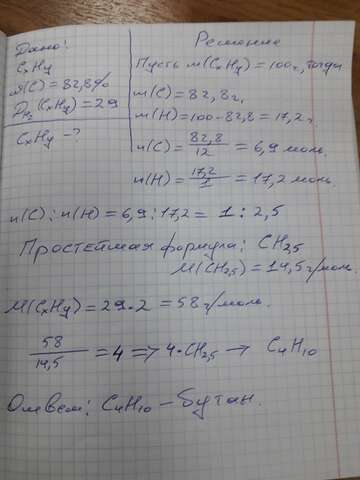 Дано:
CxHy
ω(C) = 82,8%
D_H2 (CxHy) = 29
CxHy - ?
Решение
Пусть m(CxHy) = 100г, тогда
m(C) = 82,8г,
m(H) = 100 - 82,8 = 17,2г.
n(C) = 82,8/12 = 6,9 моль.
n(H) = 17,2/1 = 17,2 моль.
n(C) : n(H) = 6,9 : 17,2 = 1 : 2,5
Простейшая формула: CH2,5
M(CH2,5) = 14,5 г/моль.
M(CxHy) = 29 · 2 = 58 г/моль.
58/14,5 = 4 => 4·CH2,5 → C4H10
Ответ: C4H10 - бутан.